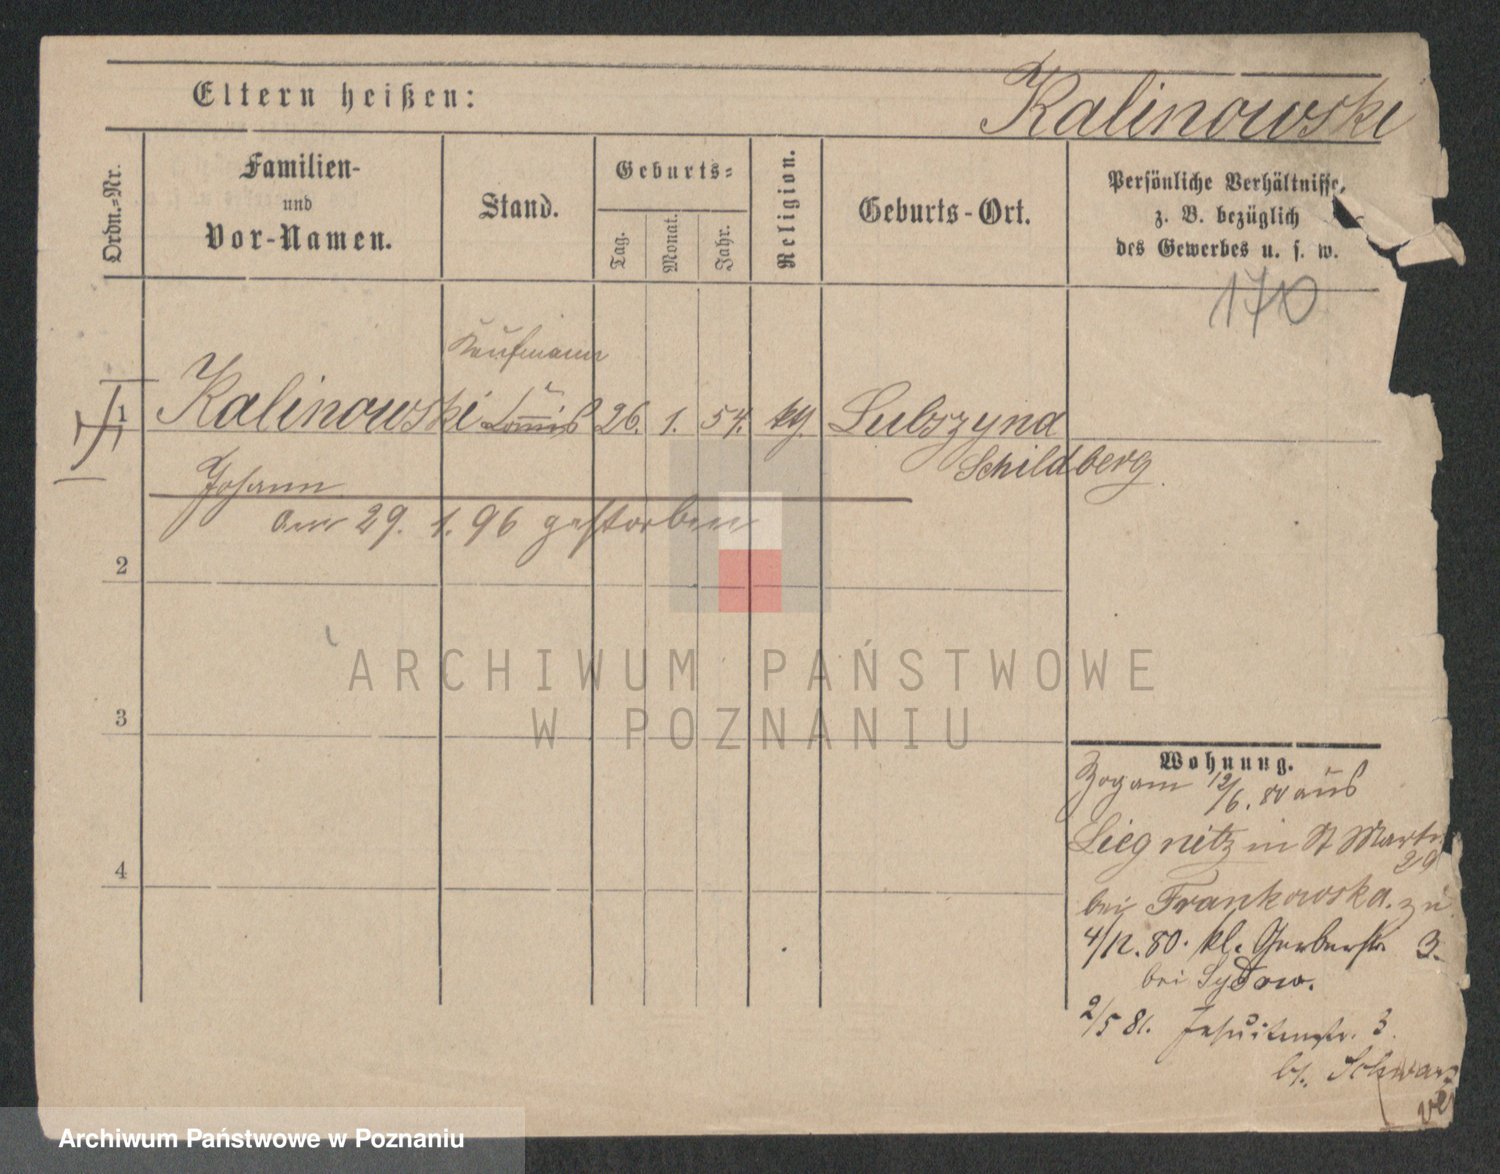 Eltern heißen:
Kalinowski
Ordn.-Nr.
Familien-
und
Vor-Namen.
Stand.
Geburts-
Tag.
Monat.
Jahr.
Religion.
Geburts-Ort.
Persönliche Verhältnisse,
z. B. bezüglich
des Gewerbes u. s. w.
170
Kaufmann
1 Kalinowski Louis 26. 1. 54. kg. Lubszyna
Johann Schildberg
am 29. 1. 96 gestorben
2
ARCHIWUM PAŃSTWOWE
W POZNANIU
3
4
Wohnung.
Zogam 12/6. 80 aus
Liegnitz in St Martin
29
bei Frankowska. zu
4/12. 80. kl. Gerberstr. 3.
bei Sydow.
2/5 81. Jesuitenstr. 3.
b. Schwarz
Archiwum Państwowe w Poznaniu